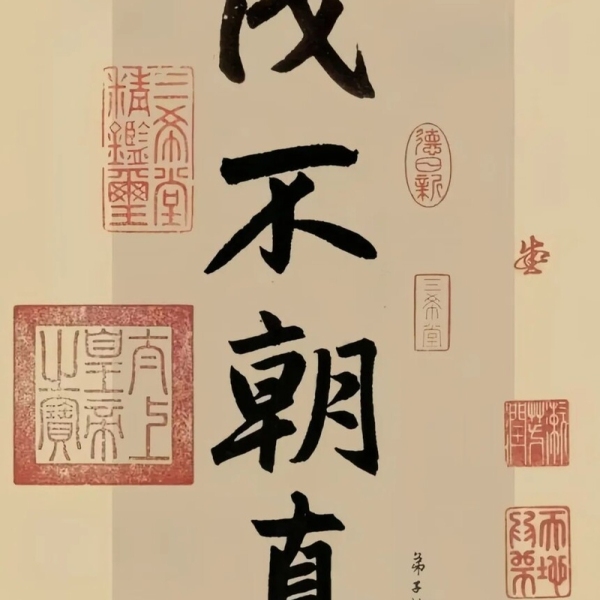 戊不朝真
弟子
三希堂精鑑璽
太上皇帝之寶
德日新
三希堂
漱芳潤